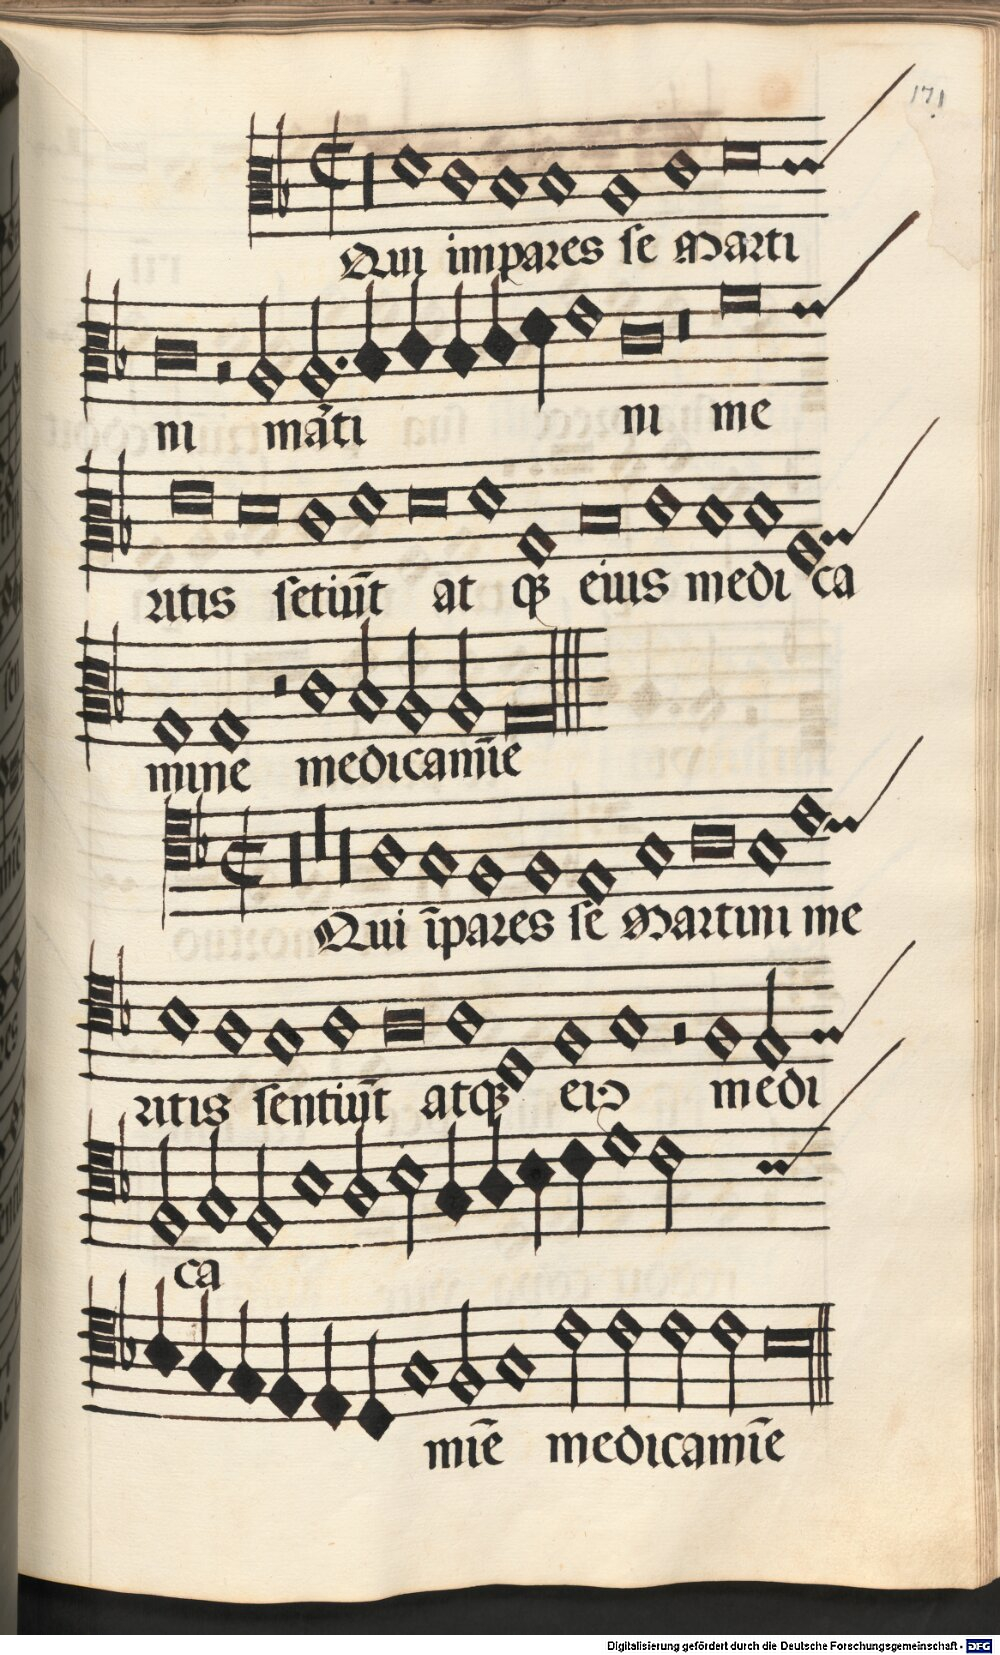 171
Qui impares se Marti
ni mãti ni me
ritis setiũt at qꝫ eius medi ca
mine medicamĩe
Qui ĩpares se Martini me
ritis sentiũt atqꝫ eiꝰ medi
ca
mĩe medicamĩe
Digitalisierung gefördert durch die Deutsche Forschungsgemeinschaft - DFG